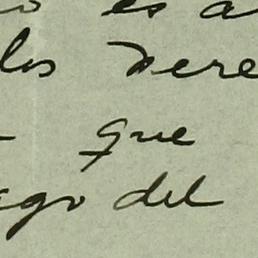 es a
los Dere
que
ago del